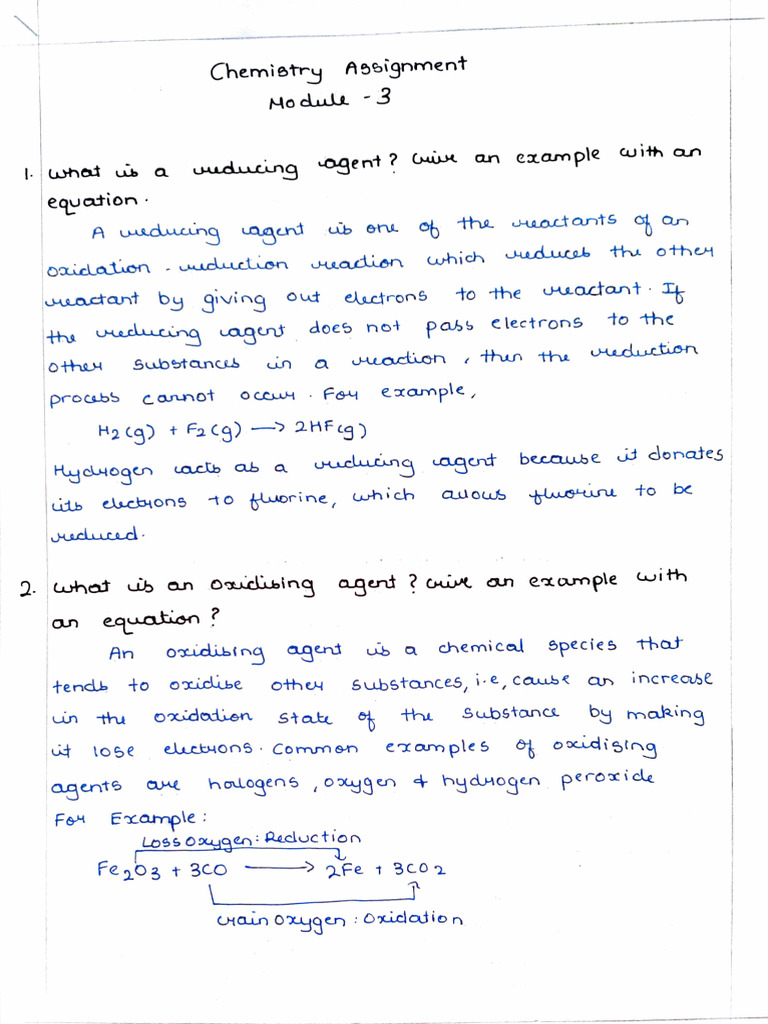 Chemistry Assignment
Module - 3
1. What is a reducing agent? Give an example with an
equation.
A reducing agent is one of the reactants of an
oxidation - reduction reaction which reduces the other
reactant by giving out electrons to the reactant. If
the reducing agent does not pass electrons to the
other substances in a reaction, then the reduction
process cannot occur. For example,
H2(g) + F2(g) → 2HF(g)
Hydrogen acts as a reducing agent because it donates
its electrons to fluorine, which allows fluorine to be
reduced.
2. What is an oxidising agent? Give an example with
an equation?
An oxidising agent is a chemical species that
tends to oxidise other substances, i.e, cause an increase
in the oxidation state of the substance by making
it lose electrons. Common examples of oxidising
agents are halogens, oxygen & hydrogen peroxide
For Example:
Loss oxygen: Reduction
Fe2O3 + 3CO → 2Fe + 3CO2
Gain oxygen: Oxidation